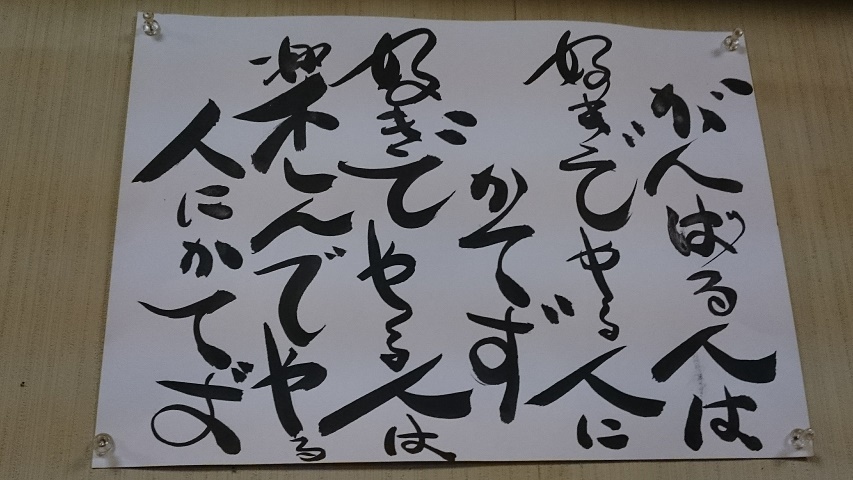 がんばる人は
好きでやる人に
かてず
好きでやる人は
楽しんでやる
人にかてず